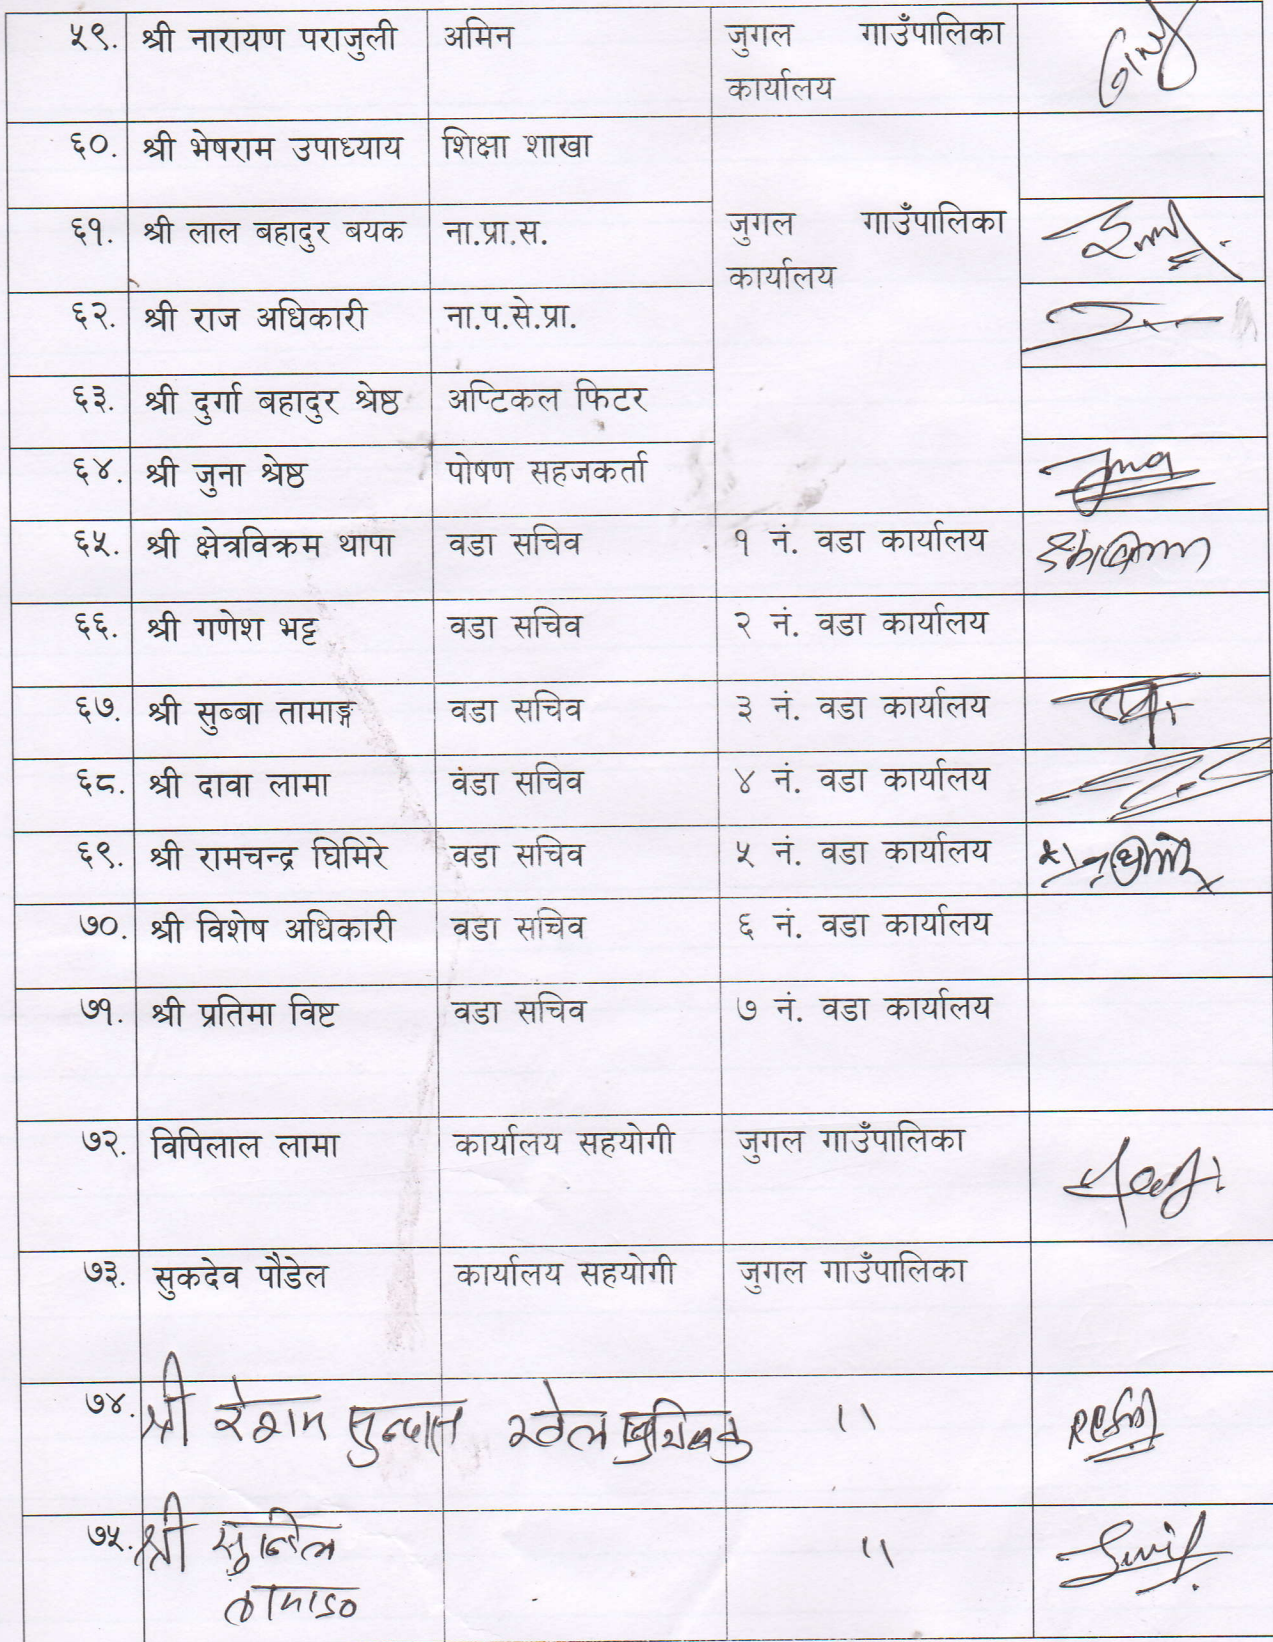 ५९. श्री नारायण पराजुली अमिन जुगल गाउँपालिका
कार्यालय
६०. श्री भेषराम उपाध्याय शिक्षा शाखा
६१. श्री लाल बहादुर बयक ना.प्रा.स. जुगल गाउँपालिका
कार्यालय
६२. श्री राज अधिकारी ना.प.से.प्रा.
६३. श्री दुर्गा बहादुर श्रेष्ठ अप्टिकल फिटर
६४. श्री जुना श्रेष्ठ पोषण सहजकर्ता
६५. श्री क्षेत्रविक्रम थापा वडा सचिव १ नं. वडा कार्यालय
६६. श्री गणेश भट्ट वडा सचिव २ नं. वडा कार्यालय
६७. श्री सुब्बा तामाङ्ग वडा सचिव ३ नं. वडा कार्यालय
६८. श्री दावा लामा वडा सचिव ४ नं. वडा कार्यालय
६९. श्री रामचन्द्र घिमिरे वडा सचिव ५ नं. वडा कार्यालय
७०. श्री विशेष अधिकारी वडा सचिव ६ नं. वडा कार्यालय
७१. श्री प्रतिमा विष्ट वडा सचिव ७ नं. वडा कार्यालय
७२. विपिलाल लामा कार्यालय सहयोगी जुगल गाउँपालिका
७३. सुकदेव पौडेल कार्यालय सहयोगी जुगल गाउँपालिका
७४. श्री रेशम खेल "
७५. श्री सुनिल "
तामाङ